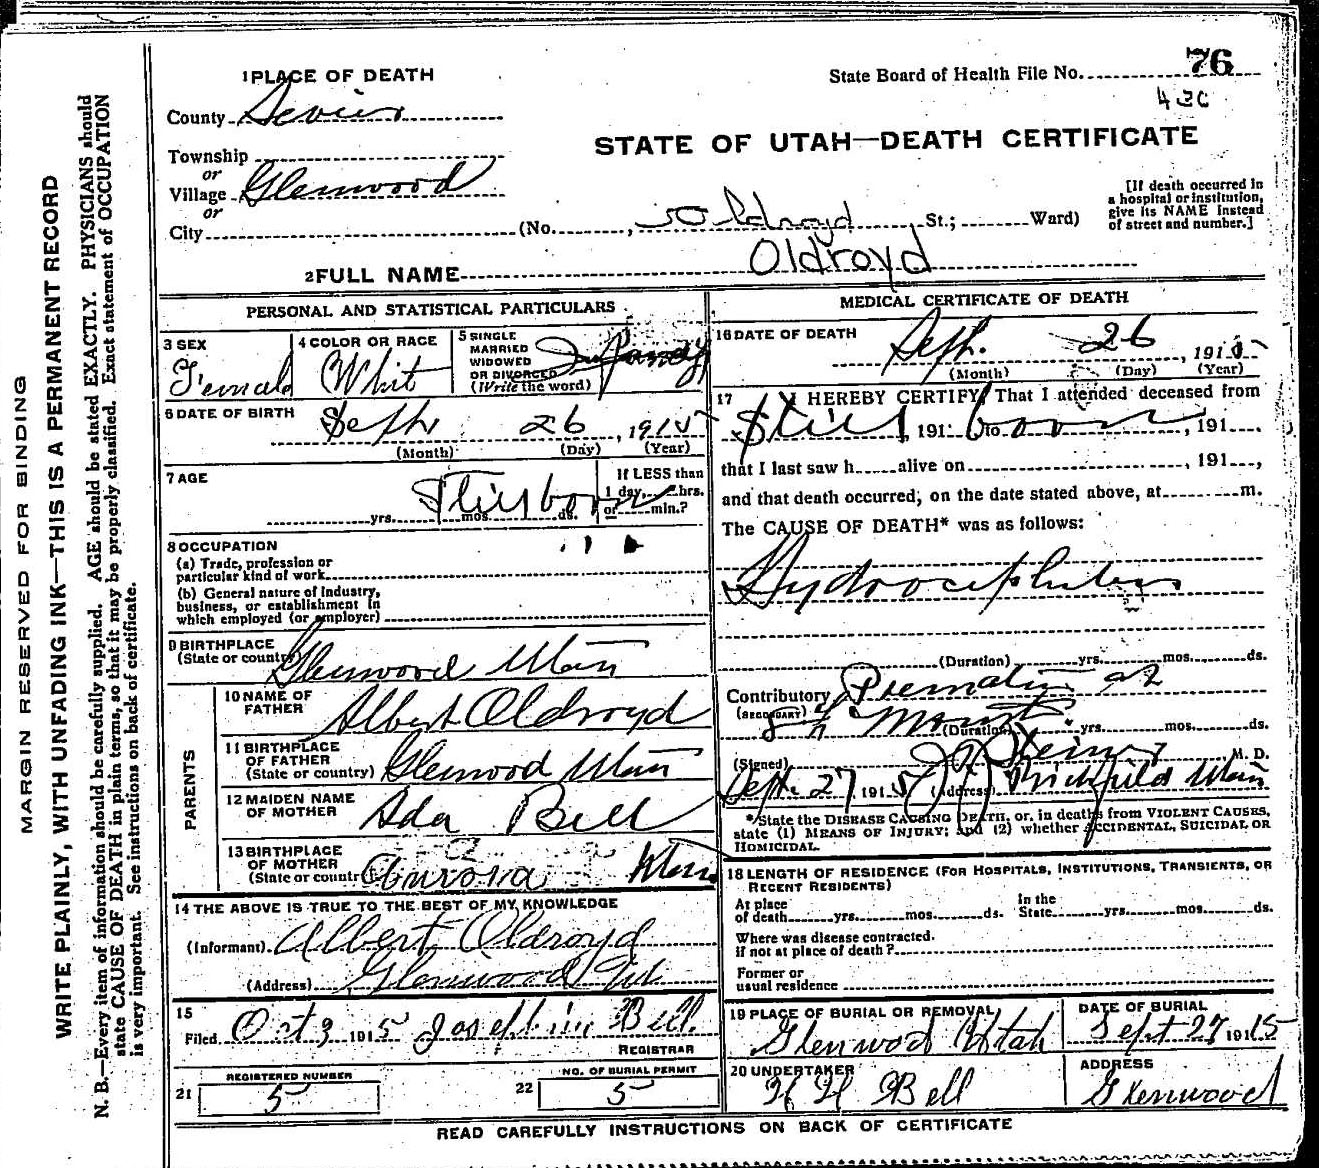 1 PLACE OF DEATH
State Board of Health File No. 76
430
County Sevier
STATE OF UTAH—DEATH CERTIFICATE
Township
or
Village Glenwood
or
City (No. , Oldroyd St.; Ward)
[If death occurred in
a hospital or institution,
give its NAME instead
of street and number.]
2 FULL NAME Oldroyd
PERSONAL AND STATISTICAL PARTICULARS
3 SEX
Female
4 COLOR OR RACE
Whit
5 SINGLE
MARRIED
WIDOWED
OR DIVORCED
(Write the word)
6 DATE OF BIRTH
Sept 26, 1915
(Month) (Day) (Year)
7 AGE
Stillborn
yrs. mos. ds.
If LESS than
1 day, hrs.
or min.?
8 OCCUPATION
(a) Trade, profession or
particular kind of work
(b) General nature of Industry,
business, or establishment in
which employed (or employer)
9 BIRTHPLACE
(State or country) Glenwood Utah
PARENTS
10 NAME OF
FATHER Albert Oldroyd
11 BIRTHPLACE
OF FATHER
(State or country) Glenwood Utah
12 MAIDEN NAME
OF MOTHER Ada Bell
13 BIRTHPLACE
OF MOTHER
(State or country) Aurora Utah
14 THE ABOVE IS TRUE TO THE BEST OF MY KNOWLEDGE
(Informant) Albert Oldroyd
(Address) Glenwood Ut.
15
Filed Oct 3 1915 Josephine Bell.
REGISTRAR
21 REGISTERED NUMBER
5
22 NO. OF BURIAL PERMIT
5
MEDICAL CERTIFICATE OF DEATH
16 DATE OF DEATH
Sept. 26, 1915
(Month) (Day) (Year)
17 I HEREBY CERTIFY, That I attended deceased from
Still, 191 to born, 191
that I last saw h alive on , 191 ,
and that death occurred, on the date stated above, at m.
The CAUSE OF DEATH* was as follows:
Hydrocephalus
(Duration) yrs. mos. ds.
Contributory Premature at
(SECONDARY)
(Duration) yrs. mos. ds.
(Signed) M. D.
Sept. 27 1915 (Address) Richfield Utah
*State the DISEASE CAUSING DEATH, or, in deaths from VIOLENT CAUSES,
state (1) MEANS OF INJURY; and (2) whether ACCIDENTAL, SUICIDAL OR
HOMICIDAL.
18 LENGTH OF RESIDENCE (FOR HOSPITALS, INSTITUTIONS, TRANSIENTS, OR
RECENT RESIDENTS)
At place
of death yrs. mos. ds.
In the
State yrs. mos. ds.
Where was disease contracted.
if not at place of death?
Former or
usual residence
19 PLACE OF BURIAL OR REMOVAL
Glenwood Utah
DATE OF BURIAL
Sept 27 1915
20 UNDERTAKER
H H Bell
ADDRESS
Glenwood
READ CAREFULLY INSTRUCTIONS ON BACK OF CERTIFICATE
MARGIN RESERVED FOR BINDING
WRITE PLAINLY, WITH UNFADING INK—THIS IS A PERMANENT RECORD
N. B.—Every item of information should be carefully supplied. AGE should be stated EXACTLY. PHYSICIANS should
state CAUSE OF DEATH in plain terms, so that it may be properly classified. Exact statement of OCCUPATION
is very important. See instructions on back of certificate.